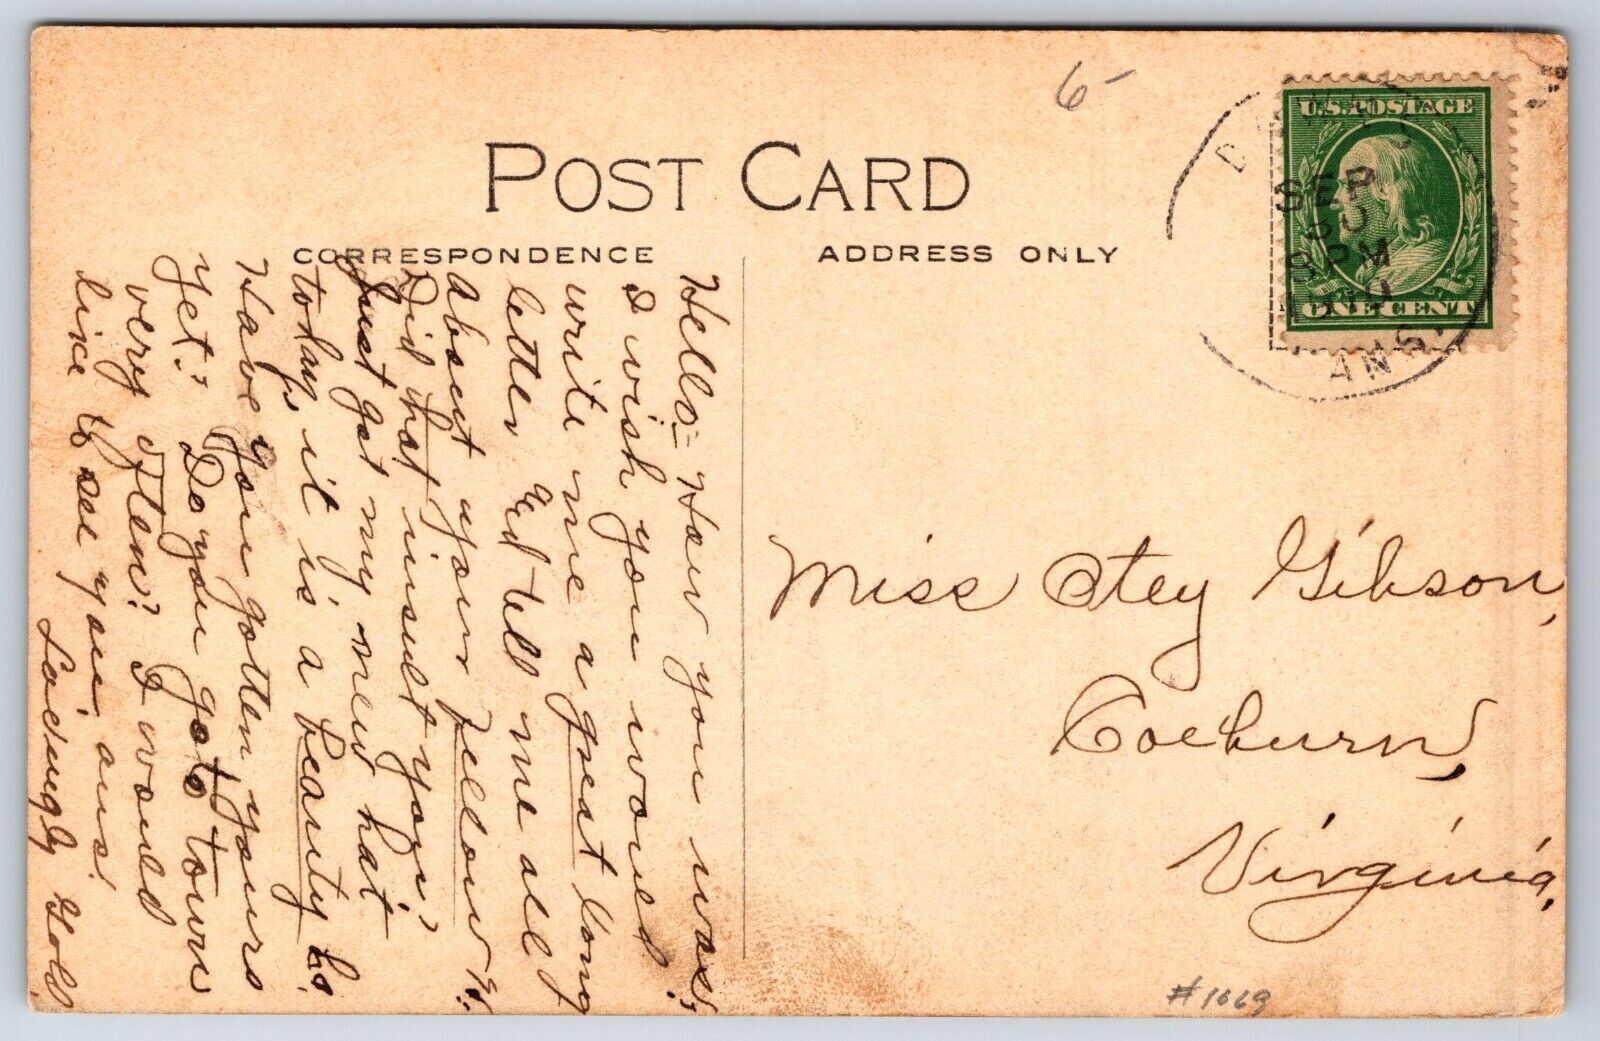 6-
U.S.POSTAGE
ONE CENT
SEP
30
8 PM
1910
ANS.
POST CARD
CORRESPONDENCE
ADDRESS ONLY
Hello= How you was;
I wish you would
write me a great long
letter and tell me all
about your fellow
Did that insult you?
Just got my new hat
today, it is a beauty
Have you gotten yours
yet? Do you go to town
very often? I would
like to see you ans!
Lovingly Gold
Miss Otey Gibson,
Coeburn,
Virginia,
#1669